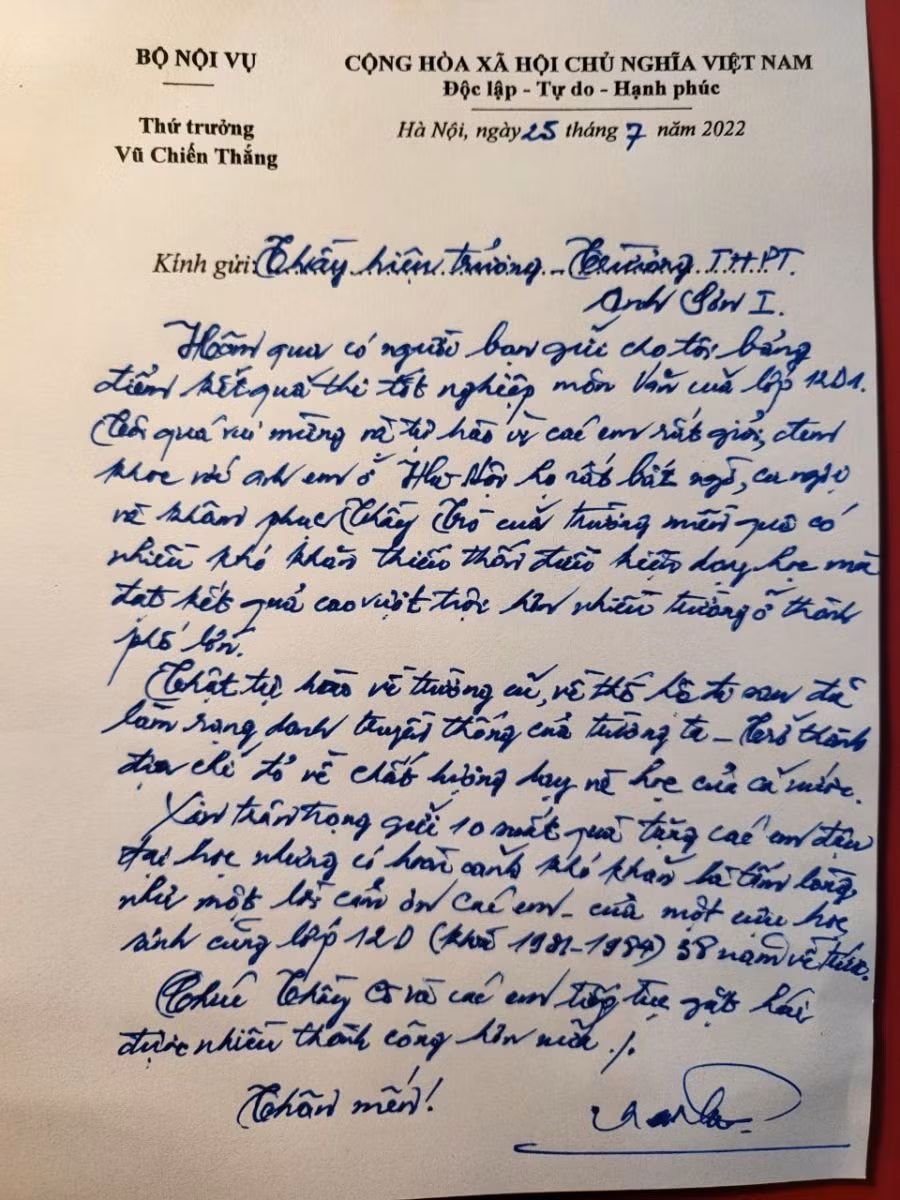 BỘ NỘI VỤ
CỘNG HÒA XÃ HỘI CHỦ NGHĨA VIỆT NAM
Độc lập - Tự do - Hạnh phúc
Thứ trưởng
Vũ Chiến Thắng
Hà Nội, ngày 25 tháng 7 năm 2022
Kính gửi: Thầy hiệu trưởng - Trường THPT
Anh Sơn I.
Hôm qua có người bạn gửi cho tôi bảng
điểm kết quả thi tốt nghiệp môn Văn của lớp 12D1.
Tôi quá vui mừng và tự hào vì các em rất giỏi, đem
khoe với anh em ở Hà Nội họ rất bất ngờ, ca ngợi
và khâm phục Thầy Trò của trường miền quê có
nhiều khó khăn thiếu thốn điều kiện dạy học mà
đạt kết quả cao vượt trội hơn nhiều trường ở thành
phố lớn.
Thật tự hào về trường cũ, về thế hệ đi sau đã
làm rạng danh truyền thống của trường ta - Trở thành
địa chỉ đỏ về chất lượng dạy và học của cả nước.
Xin trân trọng gửi 10 suất quà tặng các em đậu
đại học nhưng có hoàn cảnh khó khăn là tấm lòng
như một lời cảm ơn các em - của một cựu học
sinh cùng lớp 12D (khoá 1981-1984) 38 năm về trước.
Chúc Thầy Cô và các em tiếp tục gặt hái
được nhiều thành công hơn nữa ./.
Thân mến!